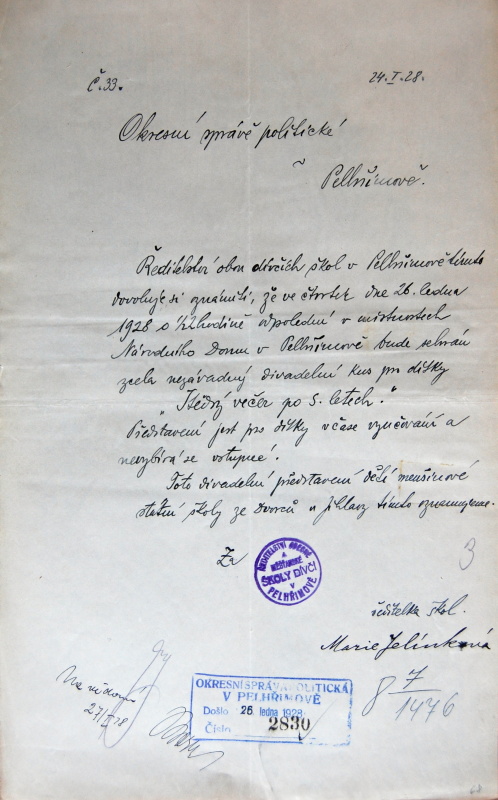 Č. 33.
24.I.28.
Okresní správě politické
v
Pelhřimově.
Ředitelství obou dívčích škol v Pelhřimově tímto
dovoluje si oznámiti, že ve čtvrtek dne 26. ledna
1928 o ½2 hodině odpolední v místnostech
Národního Domu v Pelhřimově bude sehrán
zcela nezávadný divadelní kus pro dítky
"Štědrý večer po 5. letech."
Představení jest pro dítky v čase vyučování a
nevybírá se vstupné.
Toto divadelní představení dětí menšinové
státní školy ze Dvorců u Jihlavy tímto oznamujeme.
Za
ŘEDITELSTVÍ OBECNÉ
A
MĚŠŤANSKÉ
ŠKOLY DÍVČÍ
V
PELHŘIMOVĚ
3
ředitelka škol.
Marie Jelínková
Na vědomí
27/I 28
OKRESNÍ SPRÁVA POLITICKÁ
V PELHŘIMOVĚ
Došlo 26. ledna 1928
Číslo 2830
8 7/1476